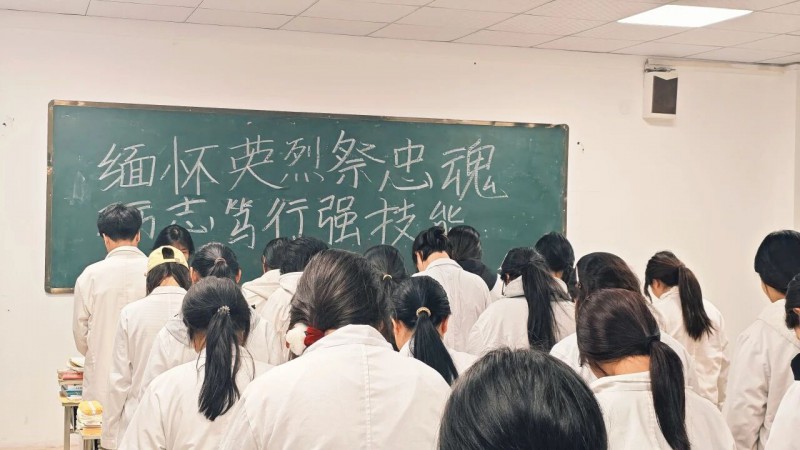 缅怀英烈祭忠魂
厉志笃行强技能